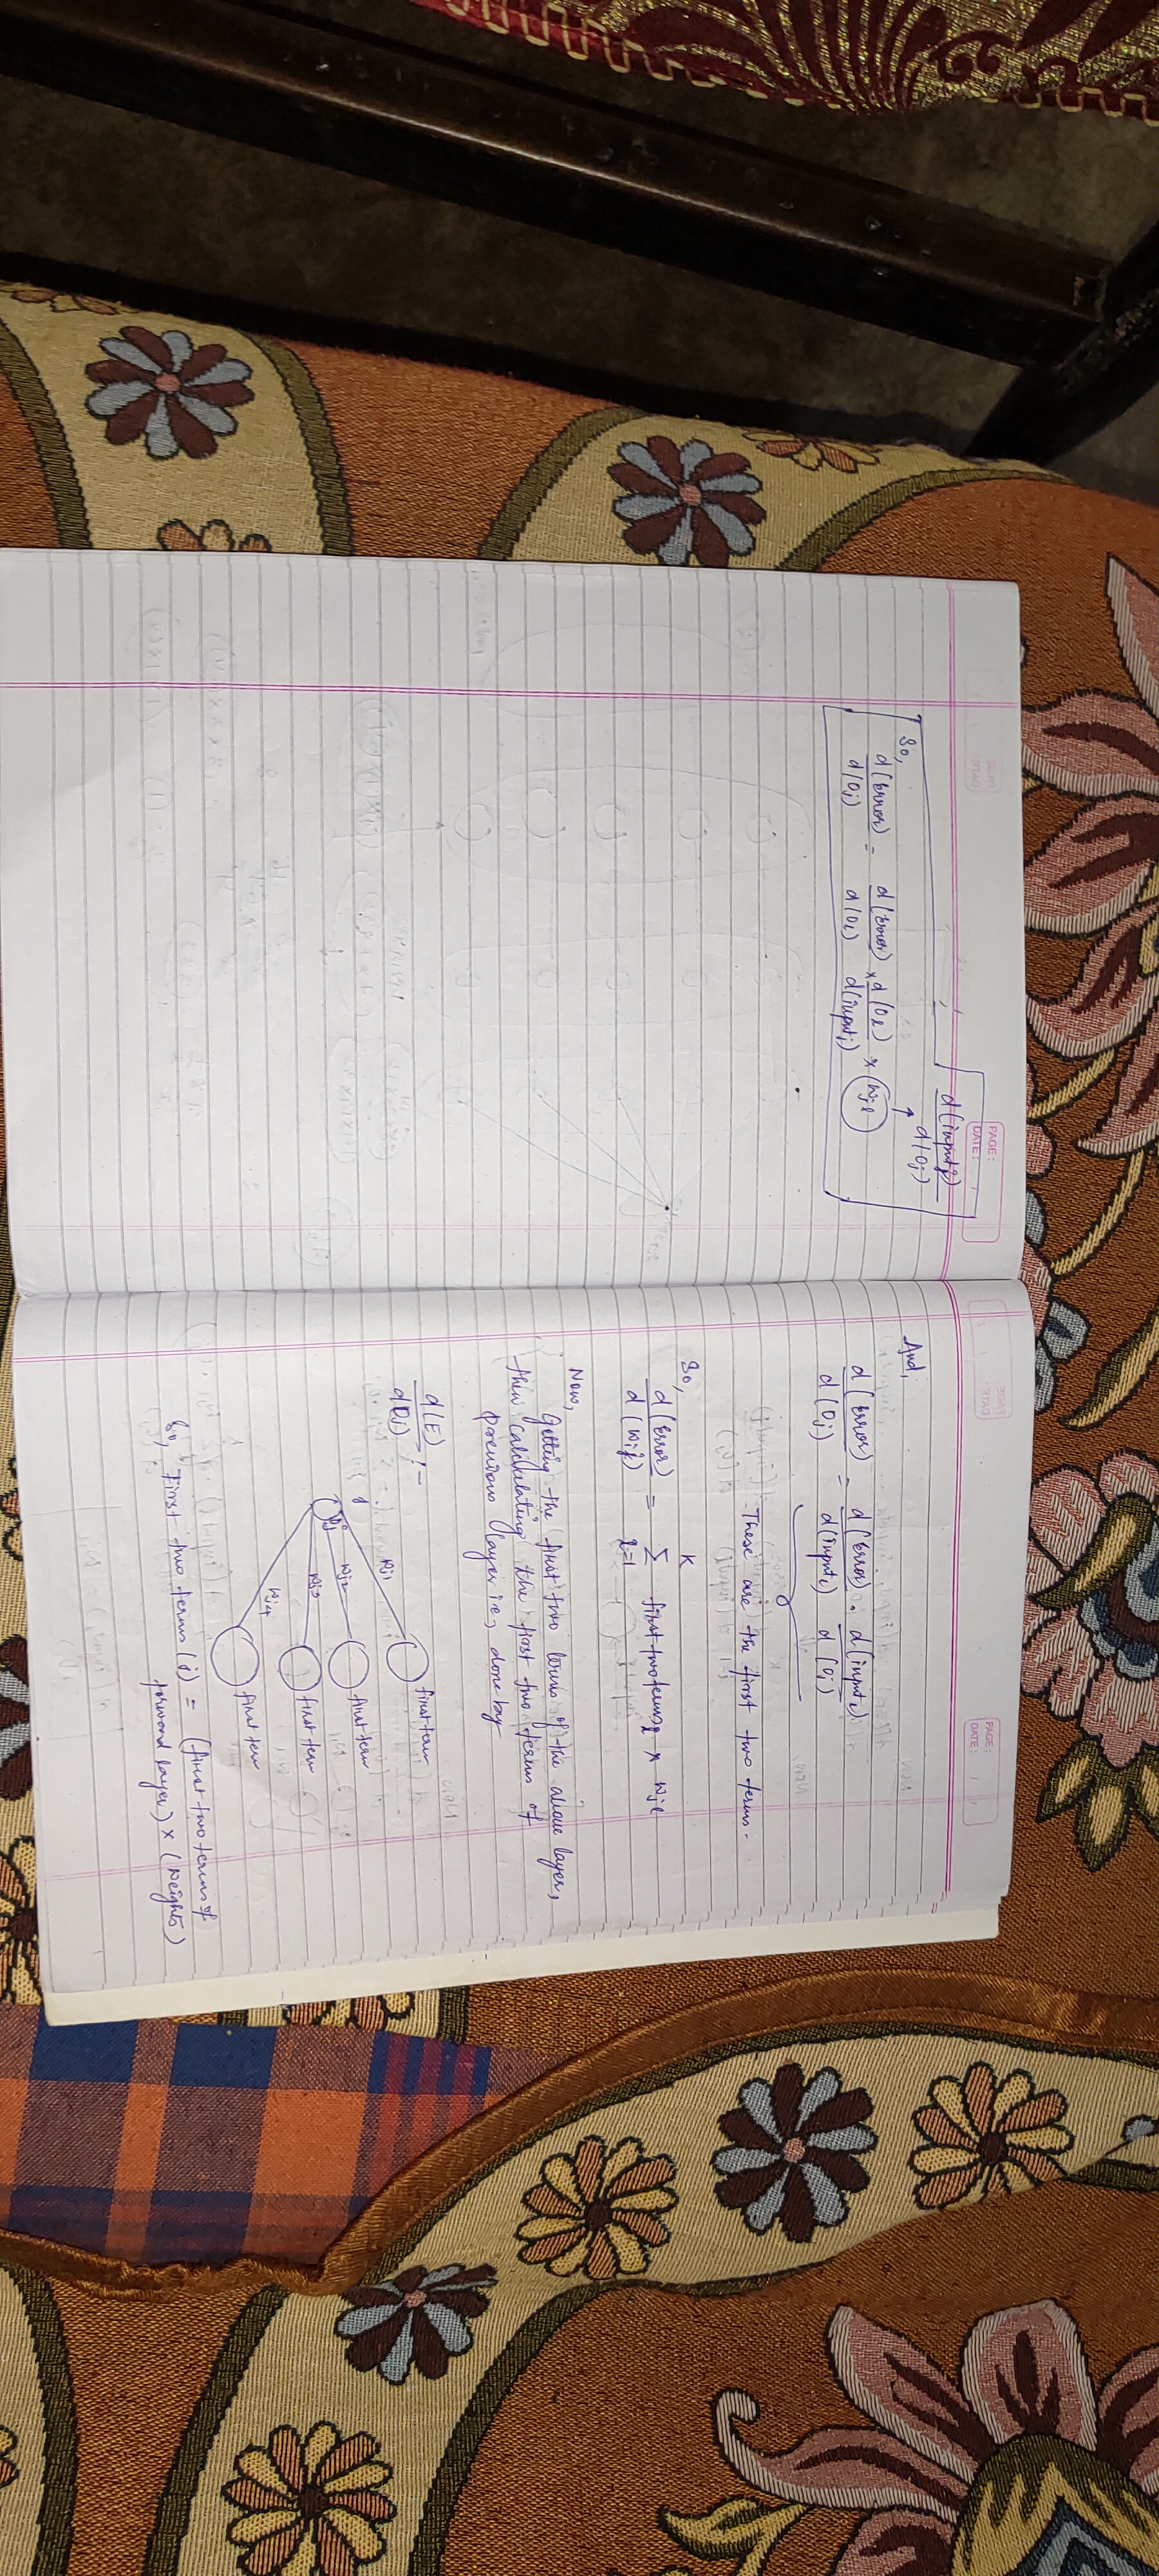 PAGE:
DATE:
d(input l)
d(Oj)
So,
d(Error) = d(Error) × d(Ol) × Wjl
d(Oj) d(Ol) d(input l)
PAGE:
DATE:
And,
d(Error) = d(Error) . d(input l)
d(Oj) d(input l) d(Oj)
These are the first two terms.
So,
d(Error) = K Σ l=1 first two terms l × Wjl
d(Wij)
Now,
Getting the first two terms of the above layer,
then calculating the first two terms of
previous layer is, done by
d(E) :-
d(Oj)
j
Wj1 first term
Wj2 first term
Wj3 first term
Wj4 first term
So, First two terms (j) = (first two terms of
forward layer) × (Weights)